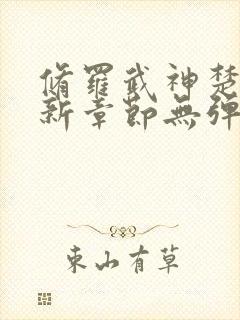 脩羅武神楚
新章節無彈
東山有草